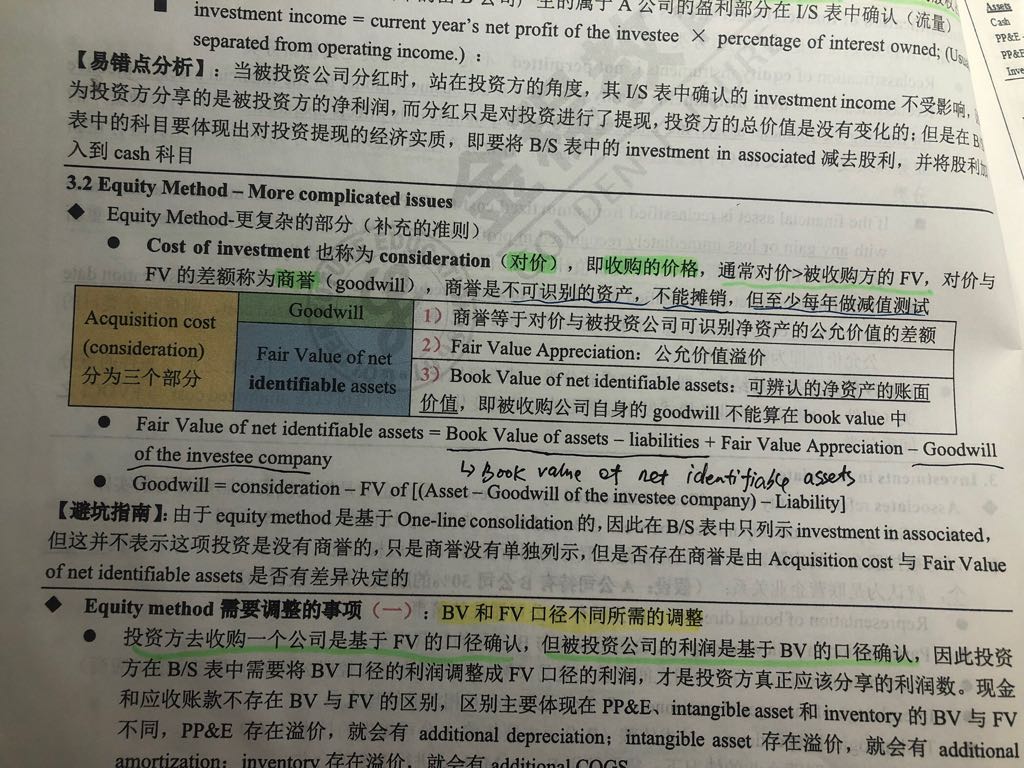 产生的属于 A 公司的盈利部分在 I/S 表中确认（流量）
investment income = current year's net profit of the investee × percentage of interest owned; (Usu
separated from operating income.)：
【易错点分析】：当被投资公司分红时，站在投资方的角度，其 I/S 表中确认的 investment income 不受影响，
为投资方分享的是被投资方的净利润，而分红只是对投资进行了提现，投资方的总价值是没有变化的；但是在 B/
表中的科目要体现出对投资提现的经济实质，即要将 B/S 表中的 investment in associated 减去股利，并将股利加
入到 cash 科目
3.2 Equity Method – More complicated issues
◆ Equity Method-更复杂的部分（补充的准则）
● Cost of investment 也称为 consideration（对价），即收购的价格，通常对价>被收购方的 FV，对价与
FV 的差额称为商誉（goodwill），商誉是不可识别的资产，不能摊销，但至少每年做减值测试
Acquisition cost
(consideration)
分为三个部分
Goodwill
Fair Value of net
identifiable assets
1）商誉等于对价与被投资公司可识别净资产的公允价值的差额
2）Fair Value Appreciation：公允价值溢价
3）Book Value of net identifiable assets：可辨认的净资产的账面
价值，即被收购公司自身的 goodwill 不能算在 book value 中
● Fair Value of net identifiable assets = Book Value of assets – liabilities + Fair Value Appreciation – Goodwill
of the investee company
↳ Book value of net identifiable assets
● Goodwill = consideration – FV of [(Asset – Goodwill of the investee company) – Liability]
【避坑指南】：由于 equity method 是基于 One-line consolidation 的，因此在 B/S 表中只列示 investment in associated，
但这并不表示这项投资是没有商誉的，只是商誉没有单独列示，但是否存在商誉是由 Acquisition cost 与 Fair Value
of net identifiable assets 是否有差异决定的
◆ Equity method 需要调整的事项（一）：BV 和 FV 口径不同所需的调整
● 投资方去收购一个公司是基于 FV 的口径确认，但被投资公司的利润是基于 BV 的口径确认，因此投资
方在 B/S 表中需要将 BV 口径的利润调整成 FV 口径的利润，才是投资方真正应该分享的利润数。现金
和应收账款不存在 BV 与 FV 的区别，区别主要体现在 PP&E、intangible asset 和 inventory 的 BV 与 FV
不同，PP&E 存在溢价，就会有 additional depreciation；intangible asset 存在溢价，就会有 additional
amortization；inventory 存在溢价，就会有 additional COGS
Assets
Cash
PP&E
PP&E
Inve